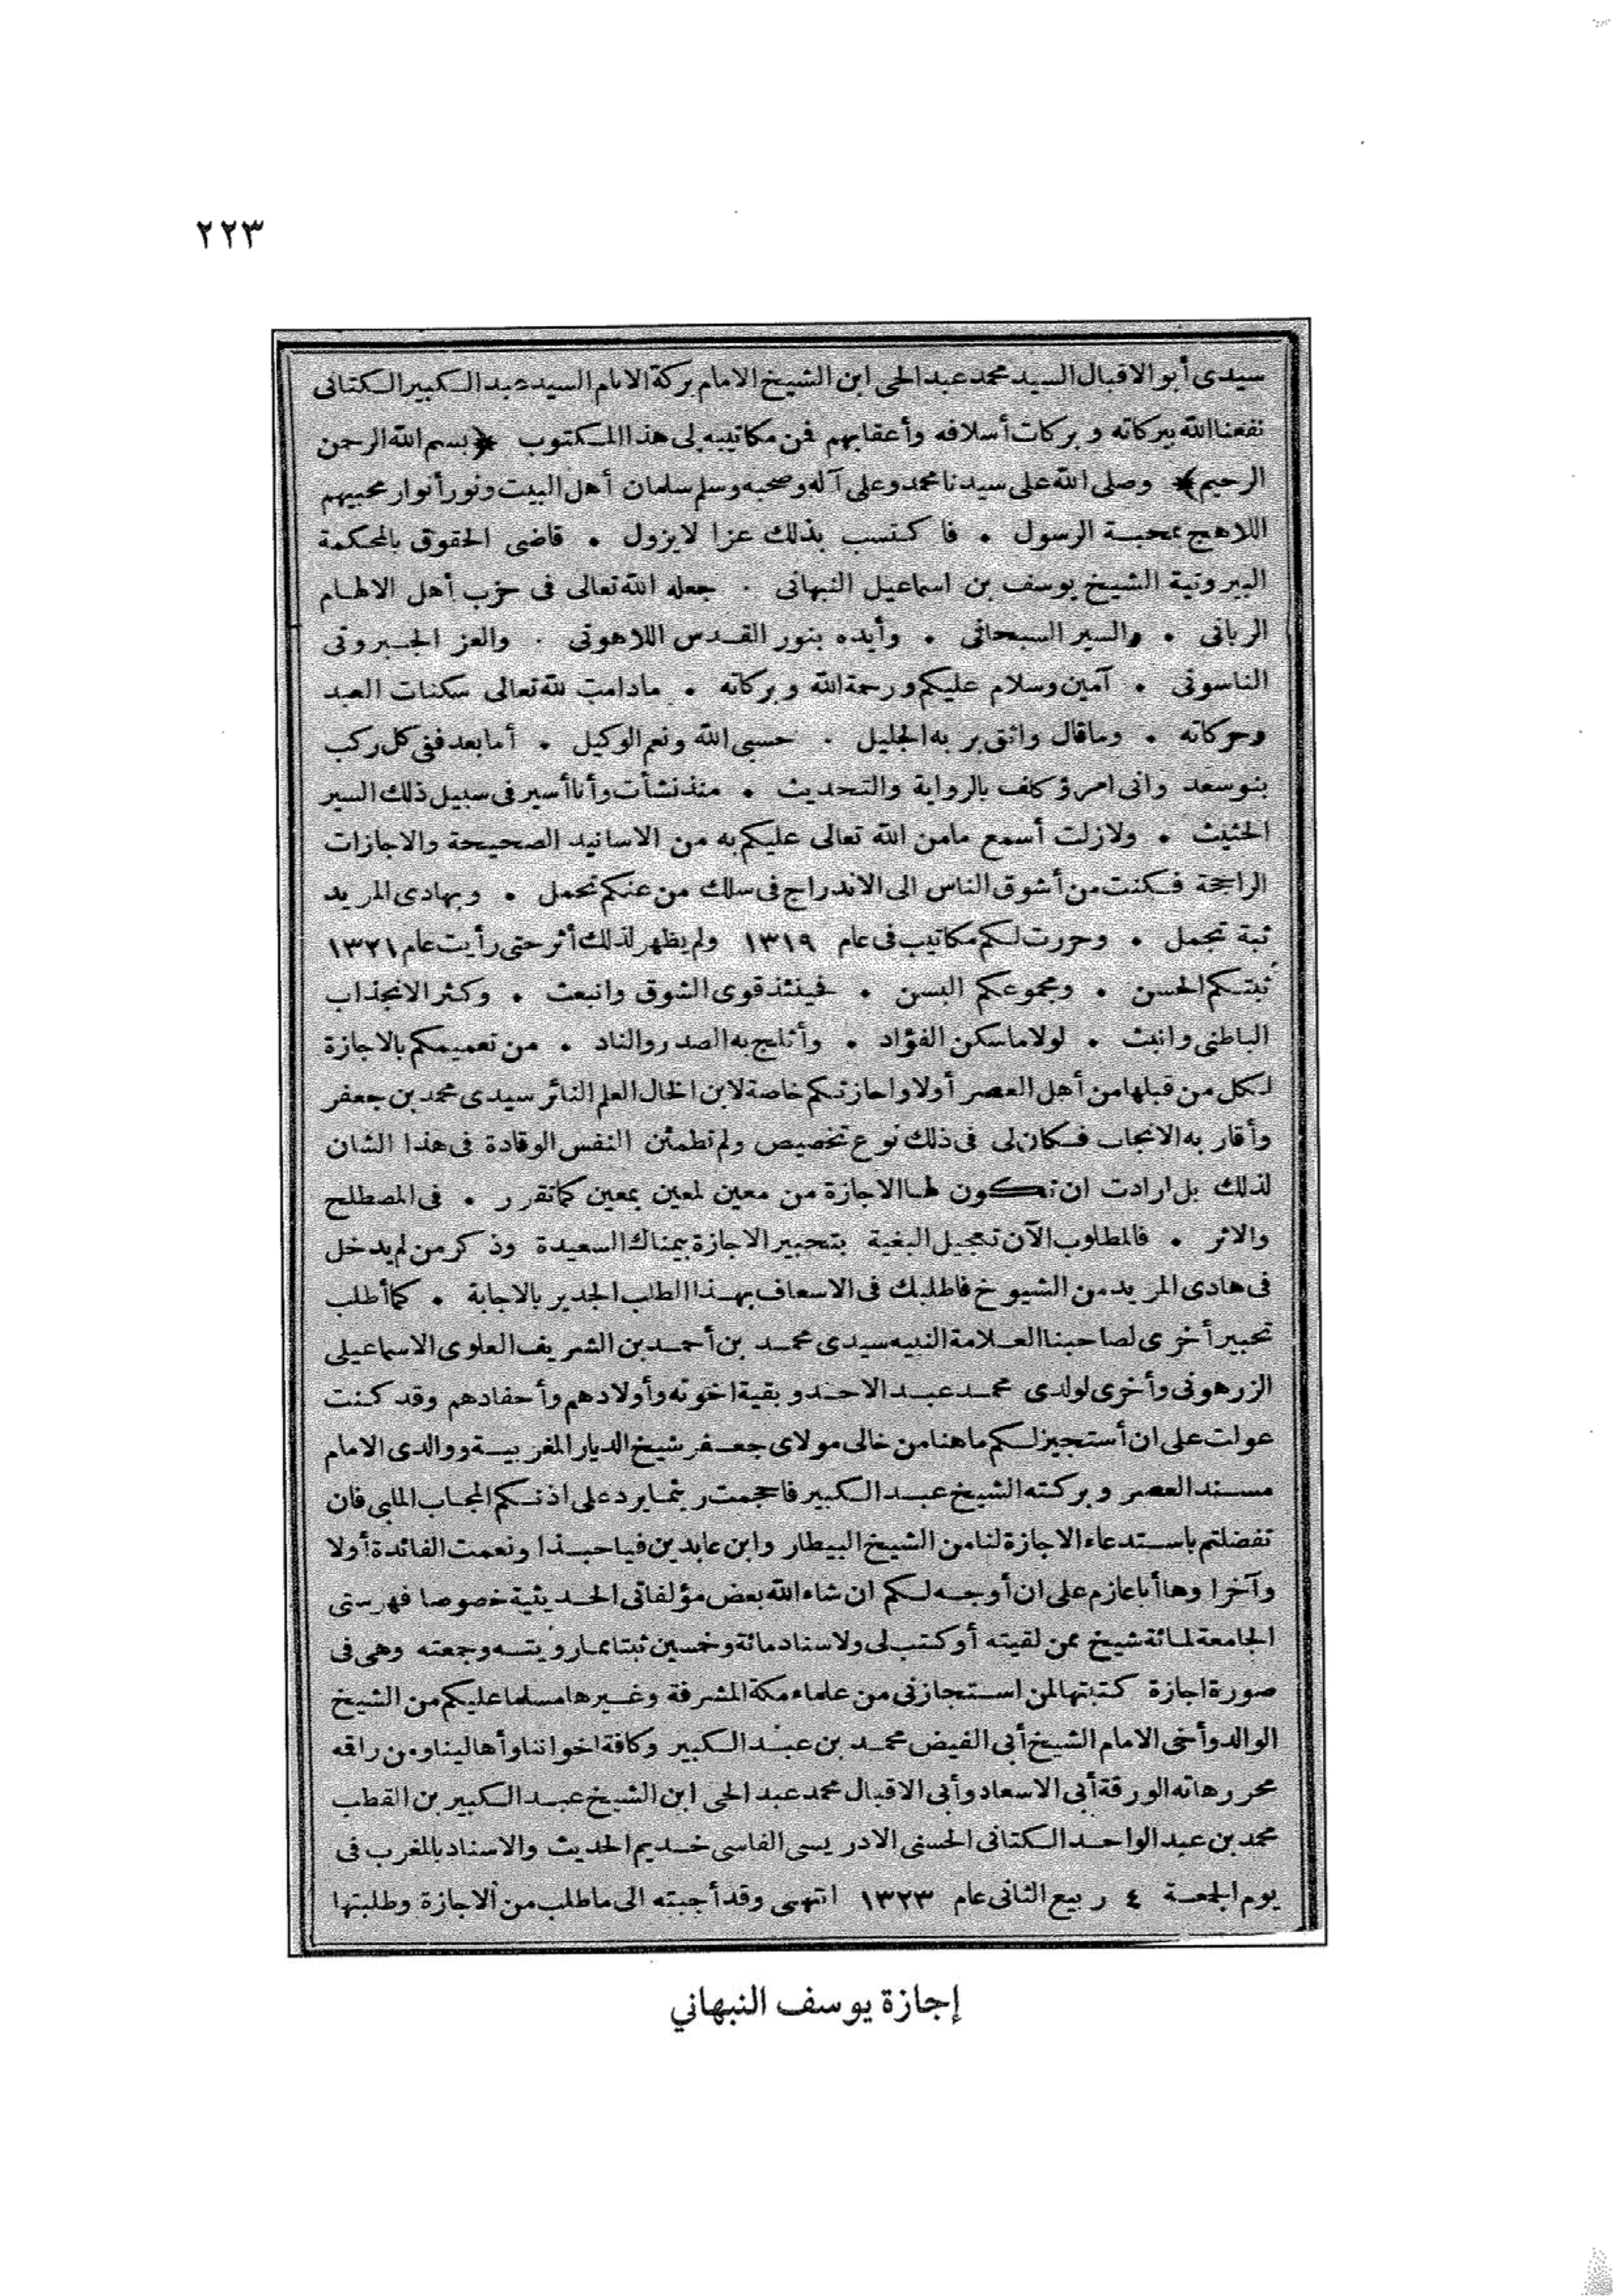 ٢٢٣
سيدى أبو الاقبال السيد محمد عبد الحى ابن الشيخ الامام بركة الانام السيد عبد الكبير الكتانى
نفعنا الله ببركاته و بركات أسلافه وأعقابهم فمن مكاتيبه لى هذا المكتوب ﴿بسم الله الرحمن
الرحيم﴾ وصلى الله على سيدنا محمد وعلى آله وصحبه وسلم سلمان أهل البيت ونور أنوار محبيهم
اللاهج بمحبة الرسول • فا كتسب بذلك عزا لايزول • قاضى الحقوق بالمحكمة
البيروتية الشيخ يوسف بن اسماعيل النبهانى • جعله الله تعالى فى حزب أهل الالهام
الربانى • والسير السبحانى • وأيده بنور القدس اللاهوتى • والعز الجبروتى
الناسوتى • آمين وسلام عليكم ورحمة الله و بركاته • مادامت لله تعالى سكنات العبد
وحركاته • وماقال واثق بر به الجليل • حسبى الله ونعم الوكيل • أما بعد ففى كل ركب
بنو سعد وانى امرؤ كلف بالرواية والتحديث • منذ نشأت وأنا أسير فى سبيل ذلك السير
الحثيث • ولازلت أسمع مامن الله تعالى عليكم به من الاسانيد الصحيحة والاجازات
الراجحة فكنت من أشوق الناس الى الاندراج فى سلك من عنكم تحمل • و بهادى المريد
ثبة تجمل • وحررت لكم مكاتيب فى عام ١٣١٩ ولم يظهر لذلك أثر حتى رأيت عام ١٣٢١
ثبتكم الحسن • ومجموعكم البسن • فحينئذ قوى الشوق وانبعث • وكثر الانجذاب
الباطنى وانبث • لولا ماسكن الفؤاد • وأثلج به الصدر والناد • من تعميمكم بالاجازة
لكل من قبلها من أهل العصر أولا واجازتكم خاصة لابن الخال العلم النائر سيدى محمد بن جعفر
وأقار به الانجاب فكان لى فى ذلك نوع تخصيص ولم تطمئن النفس الوقادة فى هذا الشان
لذلك بل ارادت ان تكون لها الاجازة من معين لمعين بمعين كما تقرر • فى المصطلح
والاثر • فالمطلوب الآن تعجيل البغية بتحبير الاجازة بيمناك السعيدة وذ كر من لم يدخل
فى هادى المريد من الشيوخ فاطلبك فى الاسعاف بهذا الطلب الجدير بالاجابة • كما أطلب
تحبير أخرى لصاحبنا العلامة النبيه سيدى محمد بن أحمد بن الشريف العلوى الاسماعيلى
الزرهونى وأخرى لولدى محمد عبد الاحد و بقية اخوته وأولادهم وأحفادهم وقد كنت
عولت على ان أستجيز لكم ماهنا من خالى مولاى جعفر شيخ الديار المغربية ووالدى الامام
مسند العصر و بركته الشيخ عبد الكبير فاحجمت ريثما يرد على اذنكم المجاب الملبى فان
تفضلتم باستدعاء الاجازة لنا من الشيخ البيطار وابن عابدين فيا حبذا ونعمت الفائدة أولا
وآخرا وها أنا عازم على ان أوجه لكم ان شاء الله بعض مؤلفاتى الحديثية خصوصا فهرستى
الجامعة لمائة شيخ ممن لقيته أو كتب لى ولاسناد مائة وخمسين ثبتا مما رويته وجمعته وهى فى
صورة اجازة كتبتها لمن استجازنى من علماء مكة المشرفة وغيرها مسلما عليكم من الشيخ
الوالد وأخى الامام الشيخ أبى الفيض محمد بن عبد الكبير وكافة اخواننا وأهالينا ومن راقمه
محرر هاته الورقة أبى الاسعاد وأبى الاقبال محمد عبد الحى ابن الشيخ عبد الكبير بن القطب
محمد بن عبد الواحد الكتانى الحسنى الادريسى الفاسى خديم الحديث والاسناد بالمغرب فى
يوم الجمعة ٤ ربيع الثانى عام ١٣٢٣ انتهى وقد أجبته الى ماطلب من الاجازة وطلبتها
إجازة يوسف النبهاني